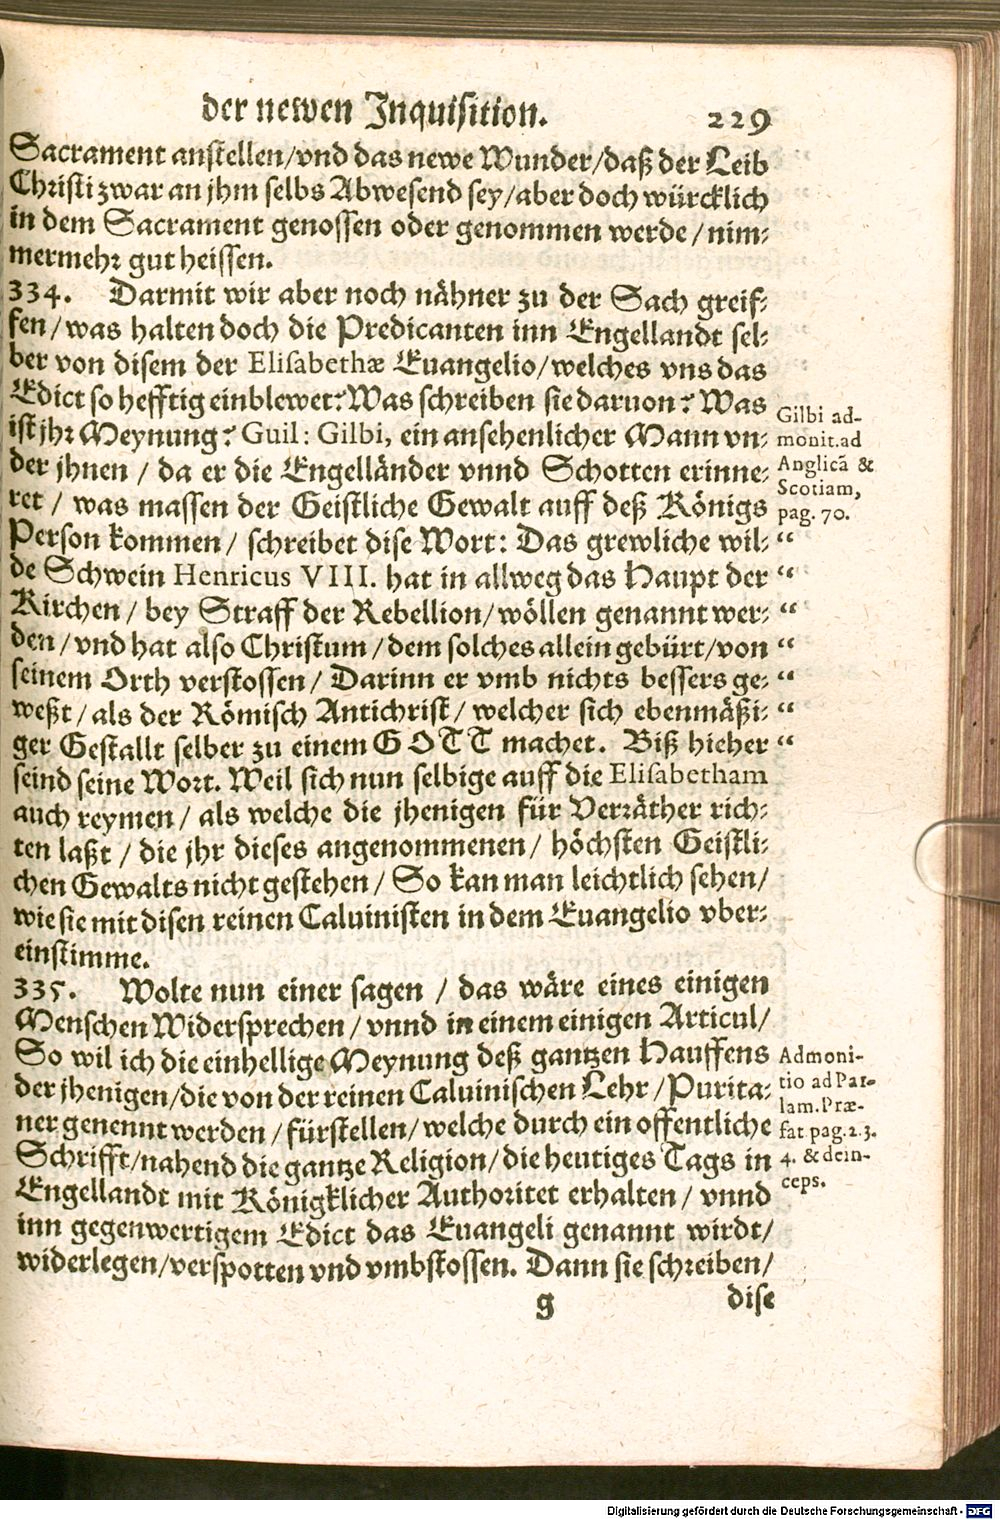 der newen Inquisition. 229
Sacrament anstellen/vnd das newe Wunder/daß der Leib
Christi zwar an jhm selbs Abwesend sey/aber doch würcklich
in dem Sacrament genossen oder genommen werde/nim-
mermehr gut heissen.
334. Darmit wir aber noch nähner zu der Sach greif-
fen/was halten doch die Predicanten inn Engellandt sel-
ber von disem der Elisabethæ Euangelio/welches vns das
Edict so hefftig einblewet? Was schreiben sie daruon? Was
ist jhr Meynung? Guil: Gilbi, ein ansehenlicher Mann vn-
der jhnen / da er die Engelländer vnnd Schotten erinne-
ret / was massen der Geistliche Gewalt auff deß Königs
Person kommen/ schreibet dise Wort: Das grewliche wil- “
de Schwein Henricus VIII. hat in allweg das Haupt der “
Kirchen/ bey Straff der Rebellion/wöllen genannt wer- “
den/vnd hat also Christum/dem solches allein gebürt/von “
seinem Orth verstossen/ Darinn er vmb nichts bessers ge- “
weßt/als der Römisch Antichrist/ welcher sich ebenmäßi- “
ger Gestallt selber zu einem GOTT machet. Biß hieher “
seind seine Wort. Weil sich nun selbige auff die Elisabetham
auch reymen/ als welche die jhenigen für Verräther rich-
ten laßt / die jhr dieses angenommenen/ höchsten Geistli-
chen Gewalts nicht gestehen/ So kan man leichtlich sehen/
wie sie mit disen reinen Caluinisten in dem Euangelio vber-
einstimme.
335. Wolte nun einer sagen / das wäre eines einigen
Menschen Widersprechen/vnnd in einem einigen Articul/
So wil ich die einhellige Meynung deß gantzen Hauffens
der jhenigen/die von der reinen Caluinischen Lehr/Purita-
ner genennt werden/fürstellen/welche durch ein offentliche
Schrifft/nahend die gantze Religion/die heutiges Tags in
Engellandt mit Königklicher Authoritet erhalten/ vnnd
inn gegenwertigem Edict das Euangeli genannt wirdt/
widerlegen/verspotten vnd vmbstossen. Dann sie schreiben/
g dise
Gilbi ad-
monit. ad
Anglicã &
Scotiam,
pag. 70.
Admoni-
tio ad Par-
lam. Præ-
fat. pag. 2. 3.
4. & dein-
ceps.
Digitalisierung gefördert durch die Deutsche Forschungsgemeinschaft - DFG